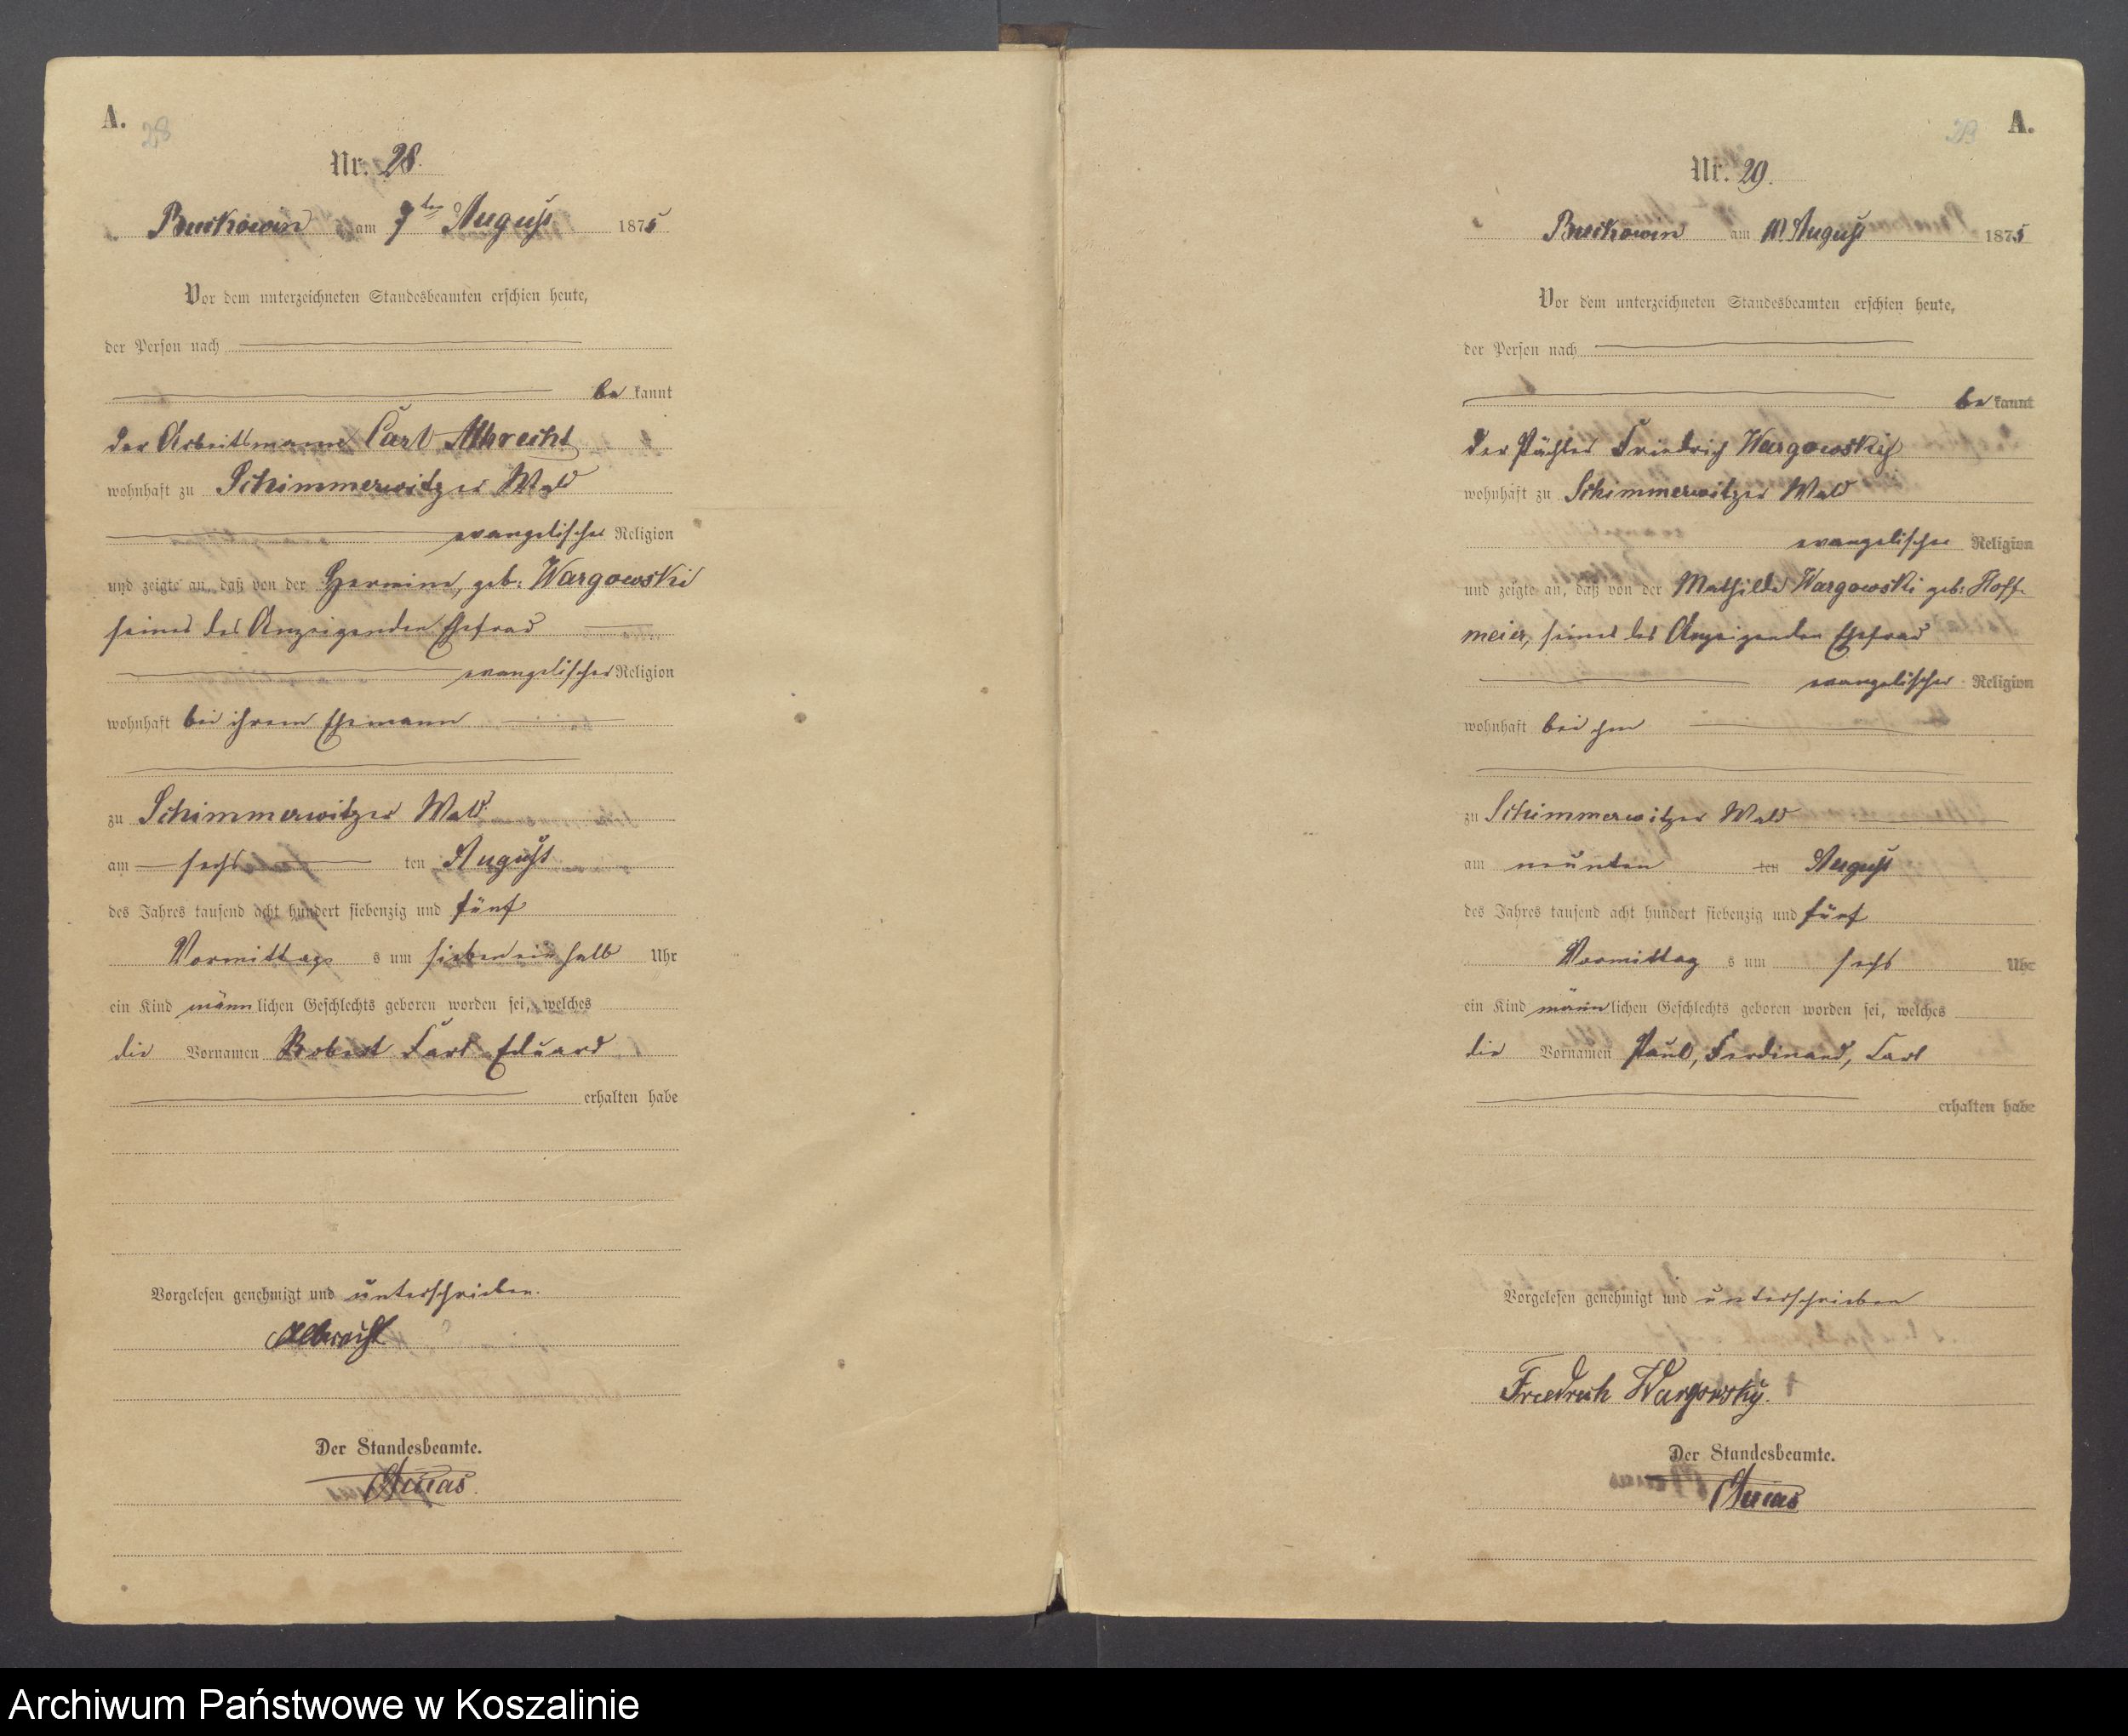 A.
28
Nr. 28.
Buckowin am 7ten August 1875
Vor dem unterzeichneten Standesbeamten erschien heute,
der Person nach
be kannt
der Arbeitsmann Carl Albrecht
wohnhaft zu Schimmerwitzer Wald
evangelischer Religion
und zeigte an, daß von der Hermine, geb: Wargowski
seiner des Anzeigenden Ehefrau
evangelischer Religion
wohnhaft bei ihrem Ehemann
zu Schimmerwitzer Wald
am sechs ten August
des Jahres tausend acht hundert siebenzig und fünf
Vormittags s um siebeneinhalb Uhr
ein Kind männlichen Geschlechts geboren worden sei, welches
die Vornamen Robert Carl Eduard
erhalten habe
Vorgelesen genehmigt und unterschrieben.
Albrecht
Der Standesbeamte.
29 A.
Nr. 29.
Buckowin am 10. August 1875
Vor dem unterzeichneten Standesbeamten erschien heute,
der Person nach
be kannt
der Pächter Friedrich Wargowskij
wohnhaft zu Schimmerwitzer Wald
evangelischer Religion
und zeigte an, daß von der Mathilde Wargowski geb: Hoff-
meier, seiner des Anzeigenden Ehefrau
evangelischer Religion
wohnhaft bei ihm
zu Schimmerwitzer Wald
am neunten ten August
des Jahres tausend acht hundert siebenzig und fünf
Vormittag s um sechs Uhr
ein Kind männlichen Geschlechts geboren worden sei, welches
die Vornamen Paul, Ferdinand, Carl
erhalten habe
Vorgelesen genehmigt und unterschrieben
Friedrich Wargowsky.
Der Standesbeamte.
Archiwum Państwowe w Koszalinie